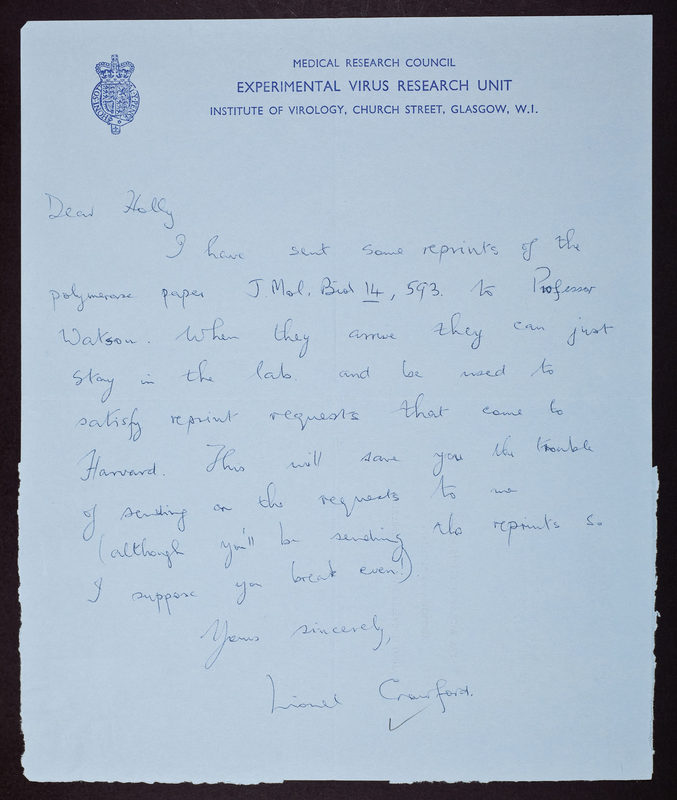 MEDICAL RESEARCH COUNCIL
EXPERIMENTAL VIRUS RESEARCH UNIT
INSTITUTE OF VIROLOGY, CHURCH STREET, GLASGOW, W.1.
Dear Holly
I have sent some reprints of the
polymerase paper J. Mol. Biol 14, 593. to Professor
Watson. When they arrive they can just
stay in the lab. and be used to
satisfy reprint requests that come to
Harvard. This will save you the trouble
of sending on the requests to me
(although you'll be sending the reprints so
I suppose you break even!).
Yours sincerely,
Lionel Crawford.